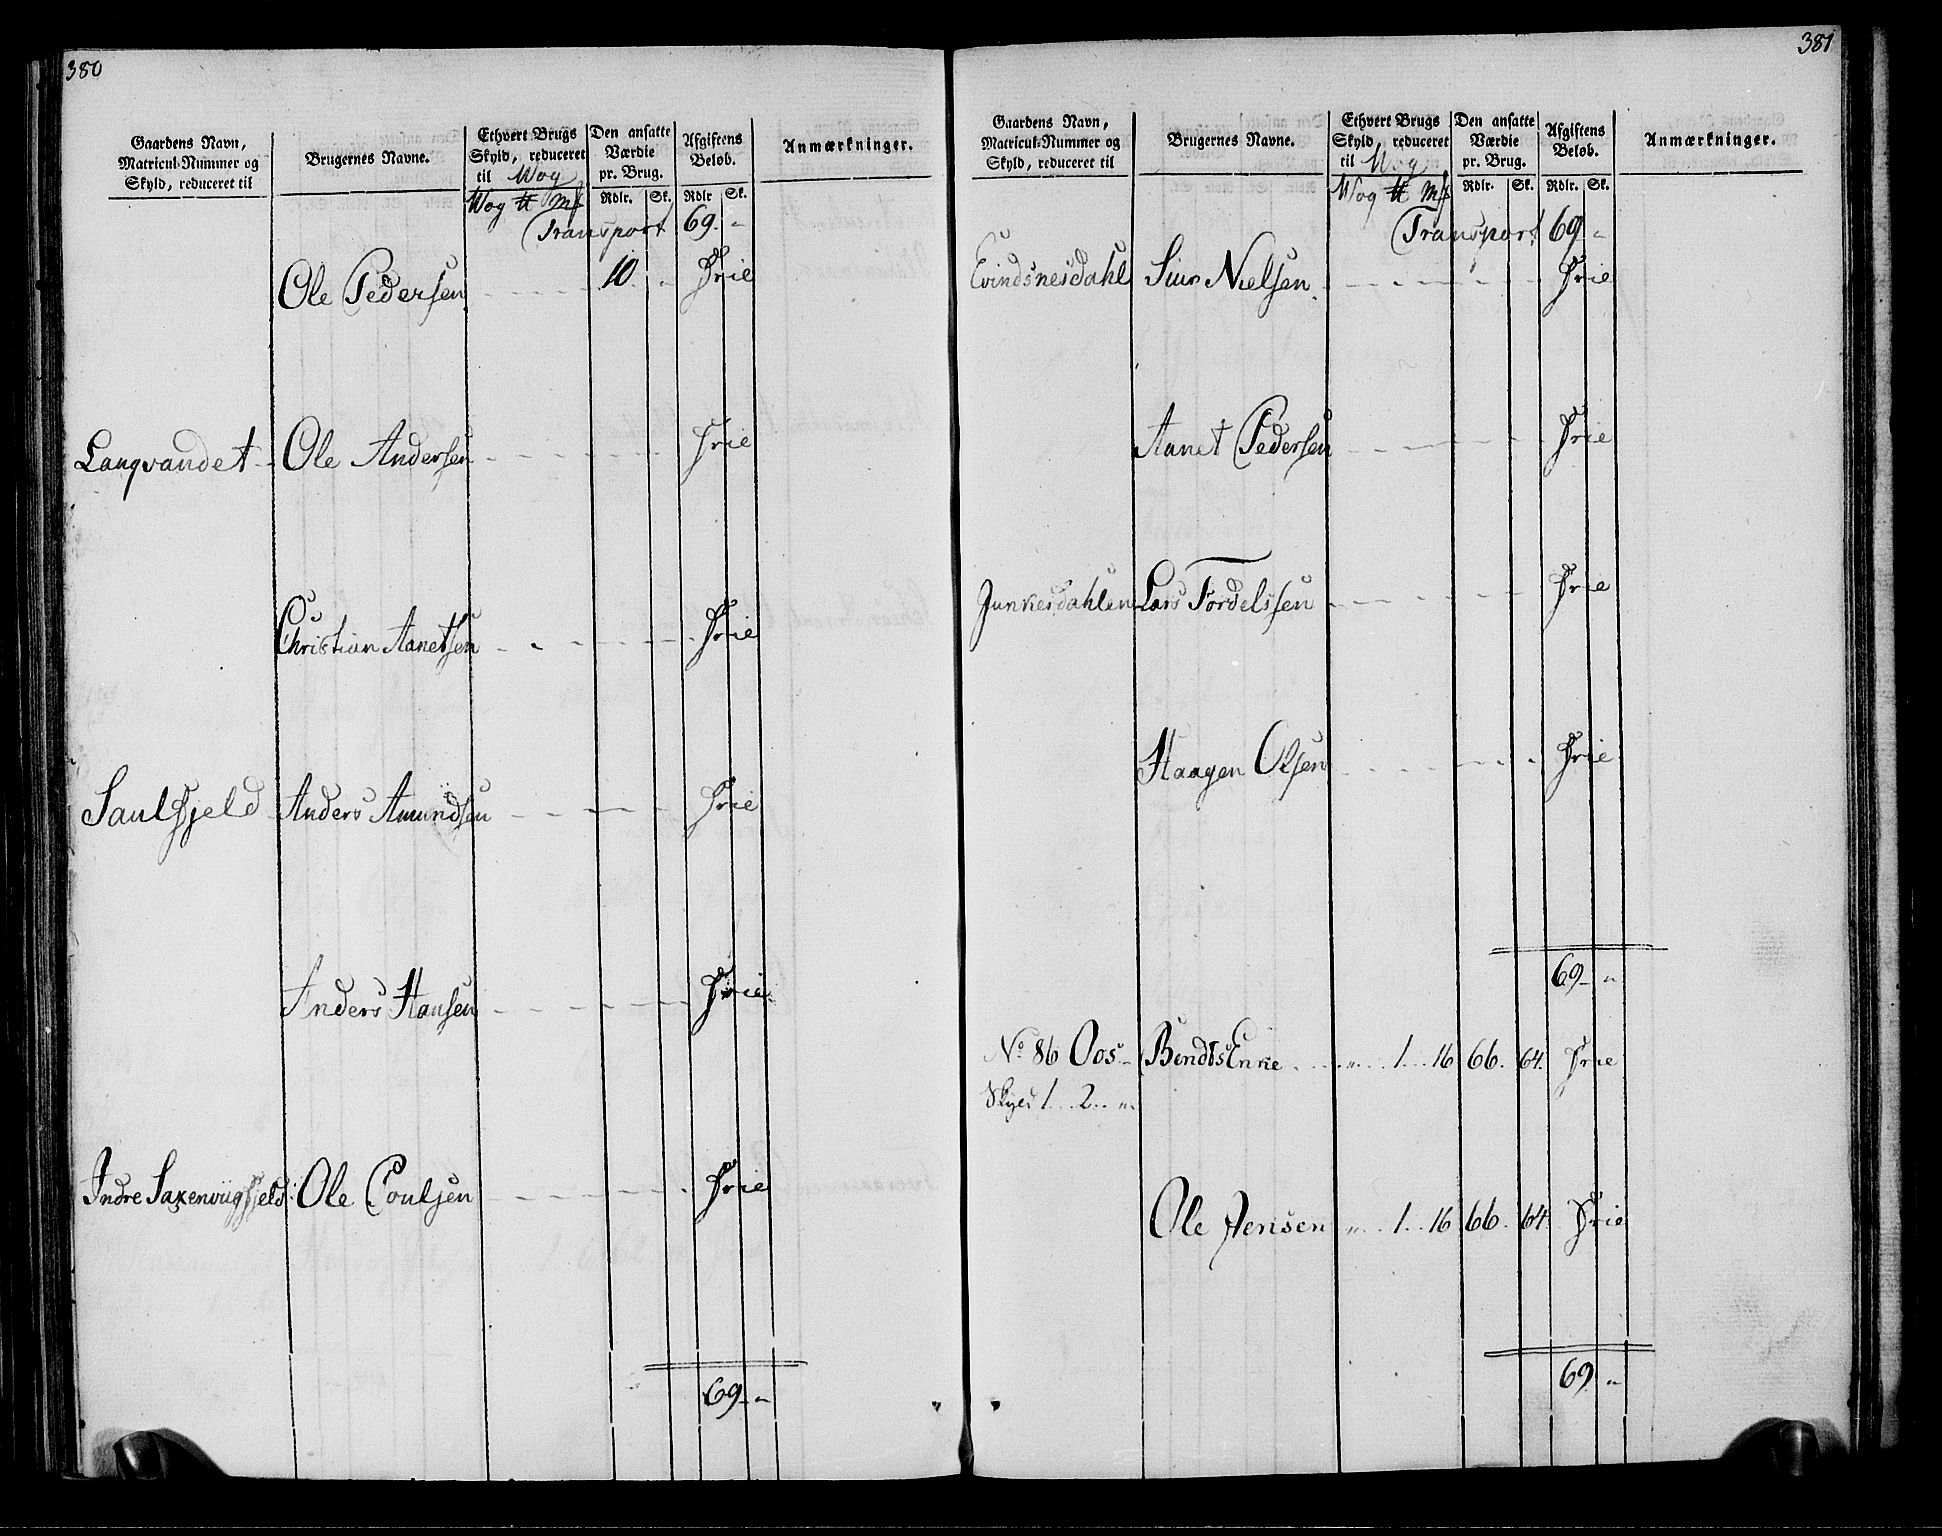 380
Gaardens Navn,
Matricul-Nummer og
Skyld, reduceret til
Brugernes Navne.
Ethvert Brugs
Skyld, reduceret
til Wog
Wog ℔ Mk
Den ansatte
Værdie
pr. Brug.
Rdlr. Sk.
Afgiftens
Beløb.
Rdlr Sk.
Anmærkninger.
Transport 69. "
Ole Pedersen 10. Frie
Langvandet Ole Andersen Frie
Christian Aanetsen Frie
Saulfjeld Anders Amundsen Frie
Anders Hansen Frie
Indre Saxenviigfjeld Ole Poulsen Frie
69. "
381
Gaardens Navn,
Matricul-Nummer og
Skyld, reduceret til
Brugernes Navne.
Ethvert Brugs
Skyld, reduceret
til Wog
Wog ℔ Mk
Den ansatte
Værdie
pr. Brug.
Rdlr. Sk.
Afgiftens
Beløb.
Rdlr. Sk.
Anmærkninger.
Transport 69 "
Evindsnesdahl Siur Nielsen Frie
Aanet Pedersen Frie
Junkersdahlen Lars Tordelssen Frie
Haagen Olsen Frie
69. "
No 86 Oos Bendts Enke " 1 16 66. 64. Frie
Skyld 1 2 "
Ole Jensen " 1 16 66. 64. Frie
69. "